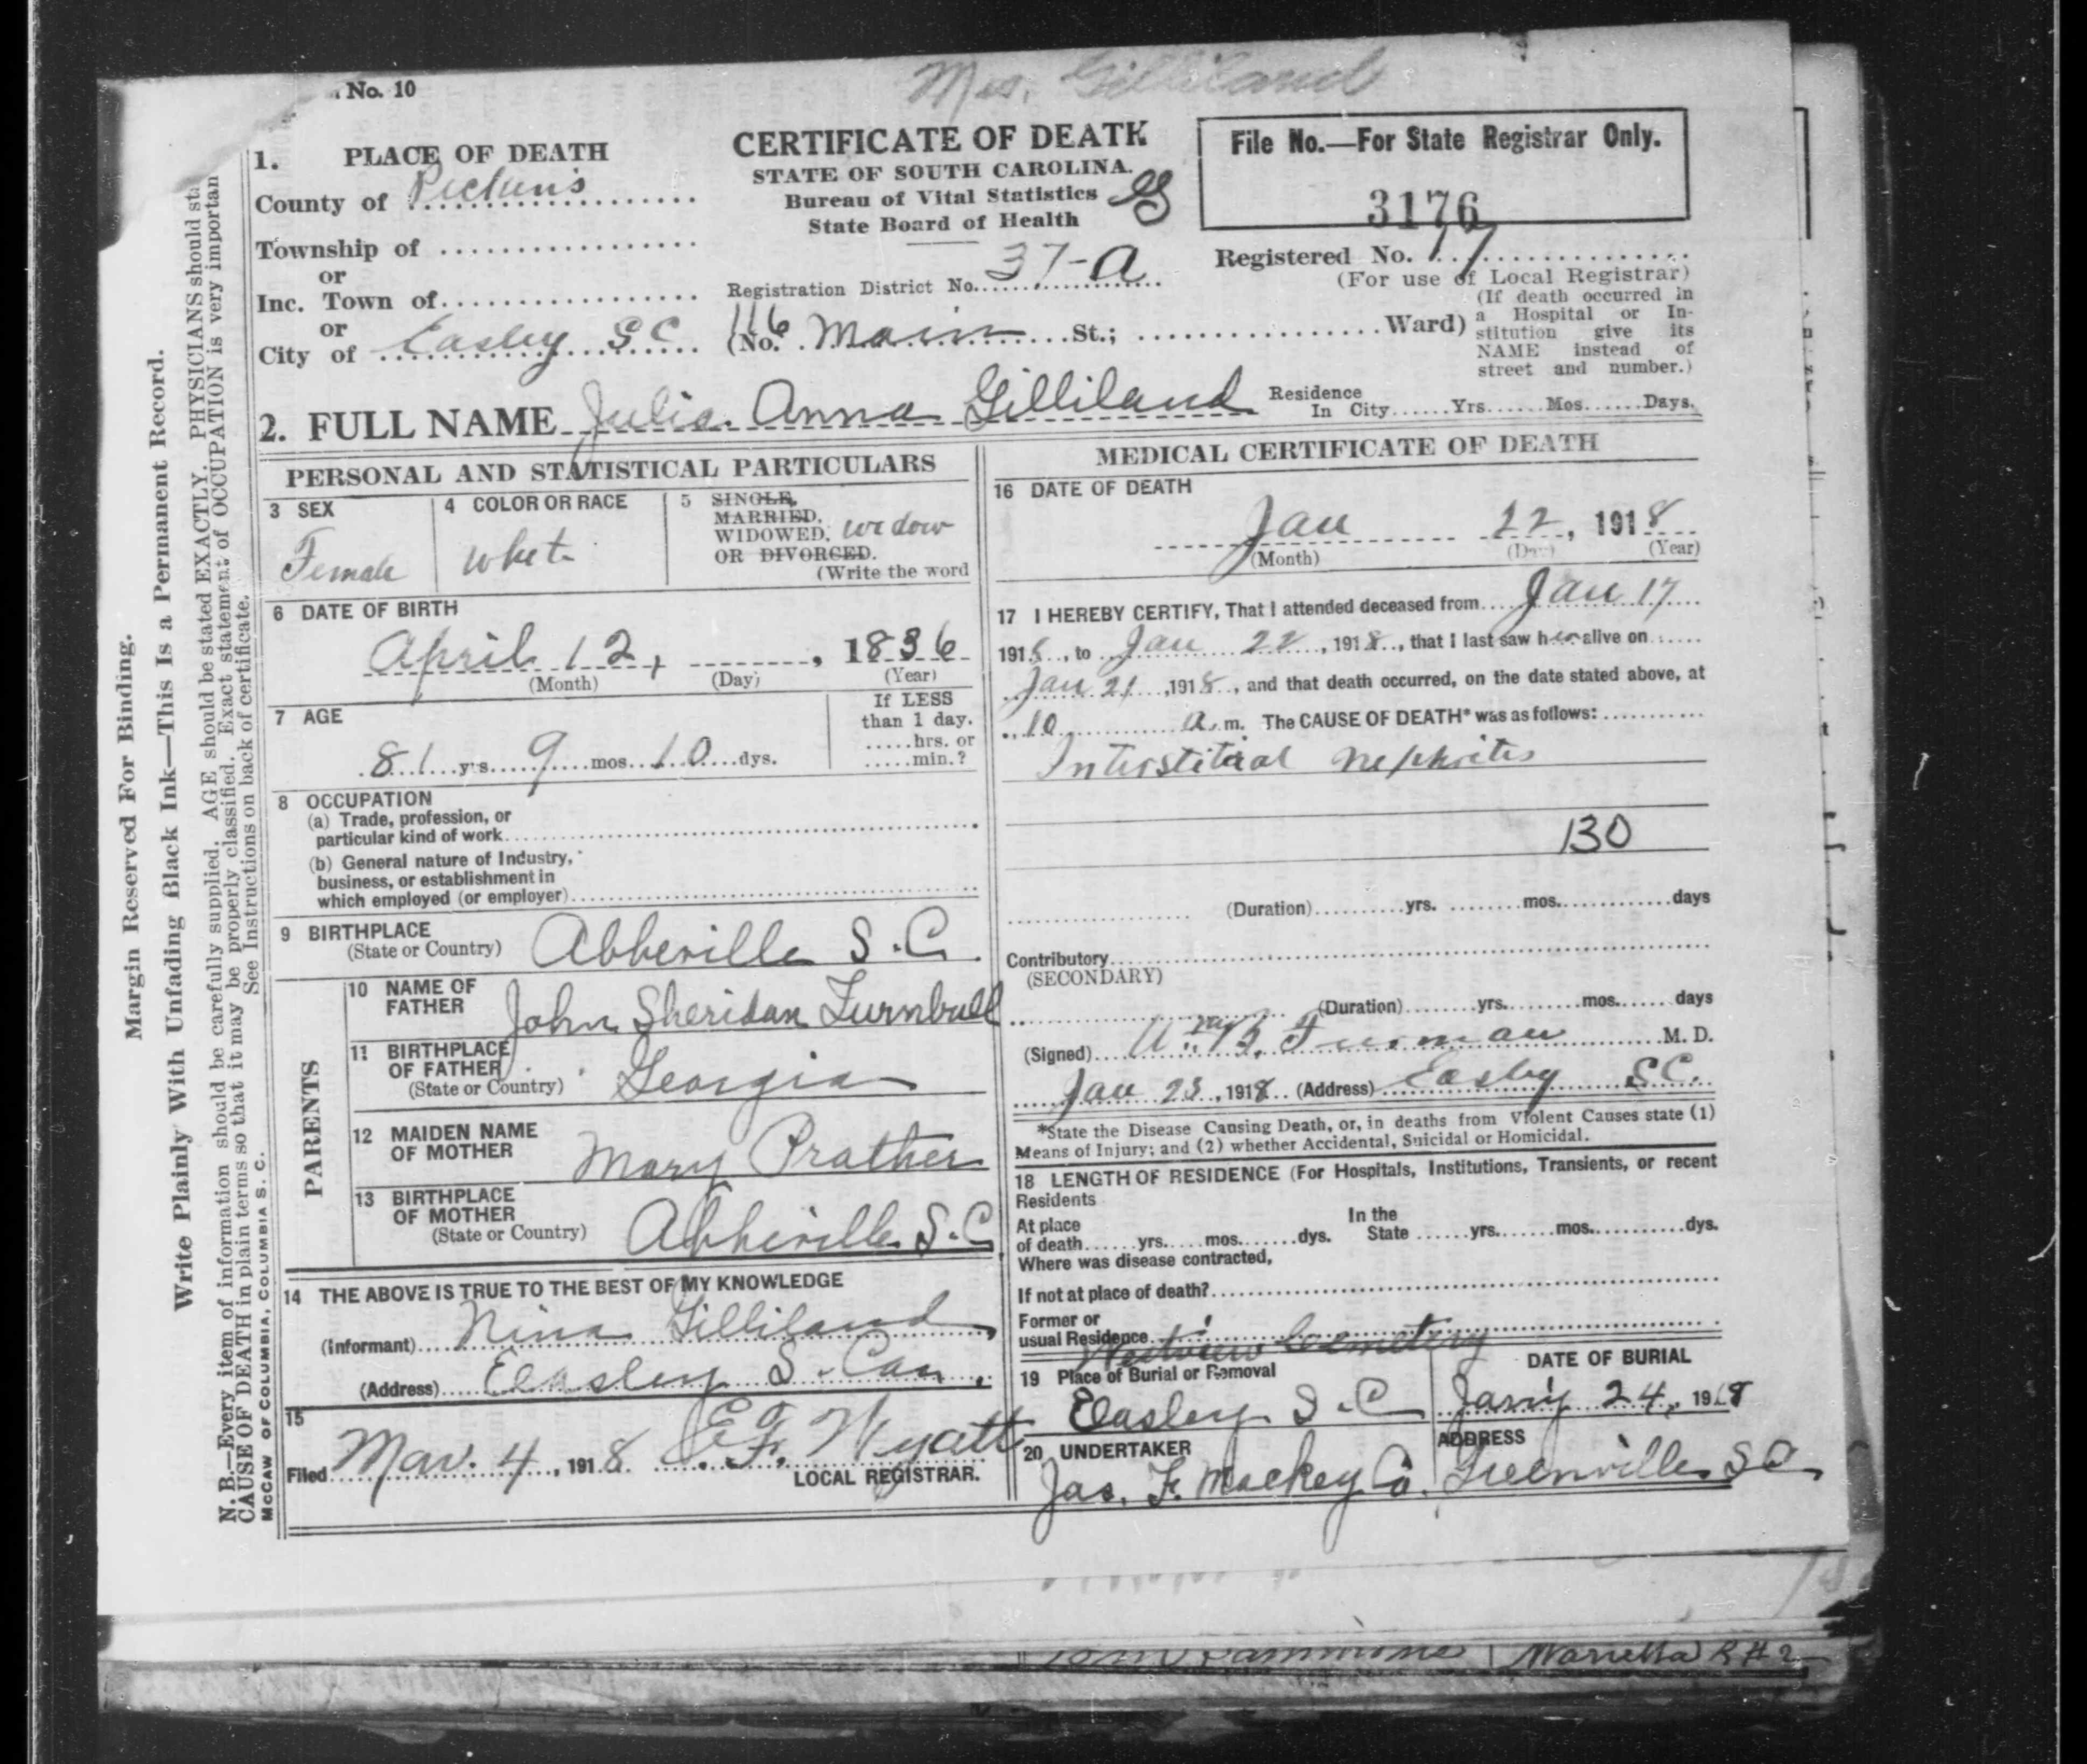 Mrs. Gilliland
No. 10
1. PLACE OF DEATH
County of Pickens
Township of
or
Inc. Town of
or
City of Easley S C
CERTIFICATE OF DEATH
STATE OF SOUTH CAROLINA.
Bureau of Vital Statistics
State Board of Health
Registration District No. 37-A
(No. 116 Main St.; Ward)
File No.—For State Registrar Only.
3176
Registered No. 17
(For use of Local Registrar)
(If death occurred in
a Hospital or In-
stitution give its
NAME instead of
street and number.)
2. FULL NAME Julia Anna Gilliland
Residence
In City......Yrs......Mos......Days.
PERSONAL AND STATISTICAL PARTICULARS
3 SEX
Female
4 COLOR OR RACE
White
5 SINGLE,
MARRIED,
WIDOWED, widow
OR DIVORCED.
(Write the word
6 DATE OF BIRTH
April 12, , 1836
(Month) (Day) (Year)
7 AGE
81 yrs. 9 mos. 10 dys.
If LESS
than 1 day.
.....hrs. or
.....min.?
8 OCCUPATION
(a) Trade, profession, or
particular kind of work
(b) General nature of Industry,
business, or establishment in
which employed (or employer)
9 BIRTHPLACE
(State or Country) Abbeville S.C.
PARENTS
10 NAME OF
FATHER John Sheridan Turnbull
11 BIRTHPLACE
OF FATHER
(State or Country) Georgia
12 MAIDEN NAME
OF MOTHER Mary Prather
13 BIRTHPLACE
OF MOTHER
(State or Country) Abbeville S.C
14 THE ABOVE IS TRUE TO THE BEST OF MY KNOWLEDGE
(Informant) Nina Gilliland
(Address) Easley S. Car.
15
Filed Mar. 4, 1918. E. F. Wyatt
LOCAL REGISTRAR.
MEDICAL CERTIFICATE OF DEATH
16 DATE OF DEATH
Jan 22, 1918
(Month) (Day) (Year)
17 I HEREBY CERTIFY, That I attended deceased from Jan 17
1918, to Jan 22, 1918, that I last saw her alive on
Jan 21, 1918, and that death occurred, on the date stated above, at
10 a.m. The CAUSE OF DEATH* was as follows:
Interstitial nephritis
130
(Duration) yrs. mos. days
Contributory
(SECONDARY)
(Duration) yrs. mos. days
(Signed) Wm B. Furman M. D.
Jan 23, 1918 (Address) Easley S.C.
*State the Disease Causing Death, or, in deaths from Violent Causes state (1)
Means of Injury; and (2) whether Accidental, Suicidal or Homicidal.
18 LENGTH OF RESIDENCE (For Hospitals, Institutions, Transients, or recent
Residents
At place In the
of death......yrs.....mos.......dys. State......yrs.......mos...........dys.
Where was disease contracted,
If not at place of death?
Former or
usual Residence
Westview Cemetery
19 Place of Burial or Removal
Easley S.C
DATE OF BURIAL
Jany 24, 1918
20 UNDERTAKER
Jas. F. Mackey Co.
ADDRESS
Greenville S C
Margin Reserved For Binding.
Write Plainly With Unfading Black Ink—This Is a Permanent Record.
N. B.—Every item of information should be carefully supplied. AGE should be stated EXACTLY. PHYSICIANS should sta
CAUSE OF DEATH in plain terms so that it may be properly classified. Exact statement of OCCUPATION is very importan
See Instructions on back of certificate.
McCAW OF COLUMBIA, COLUMBIA S. C.
Marietta R # 2